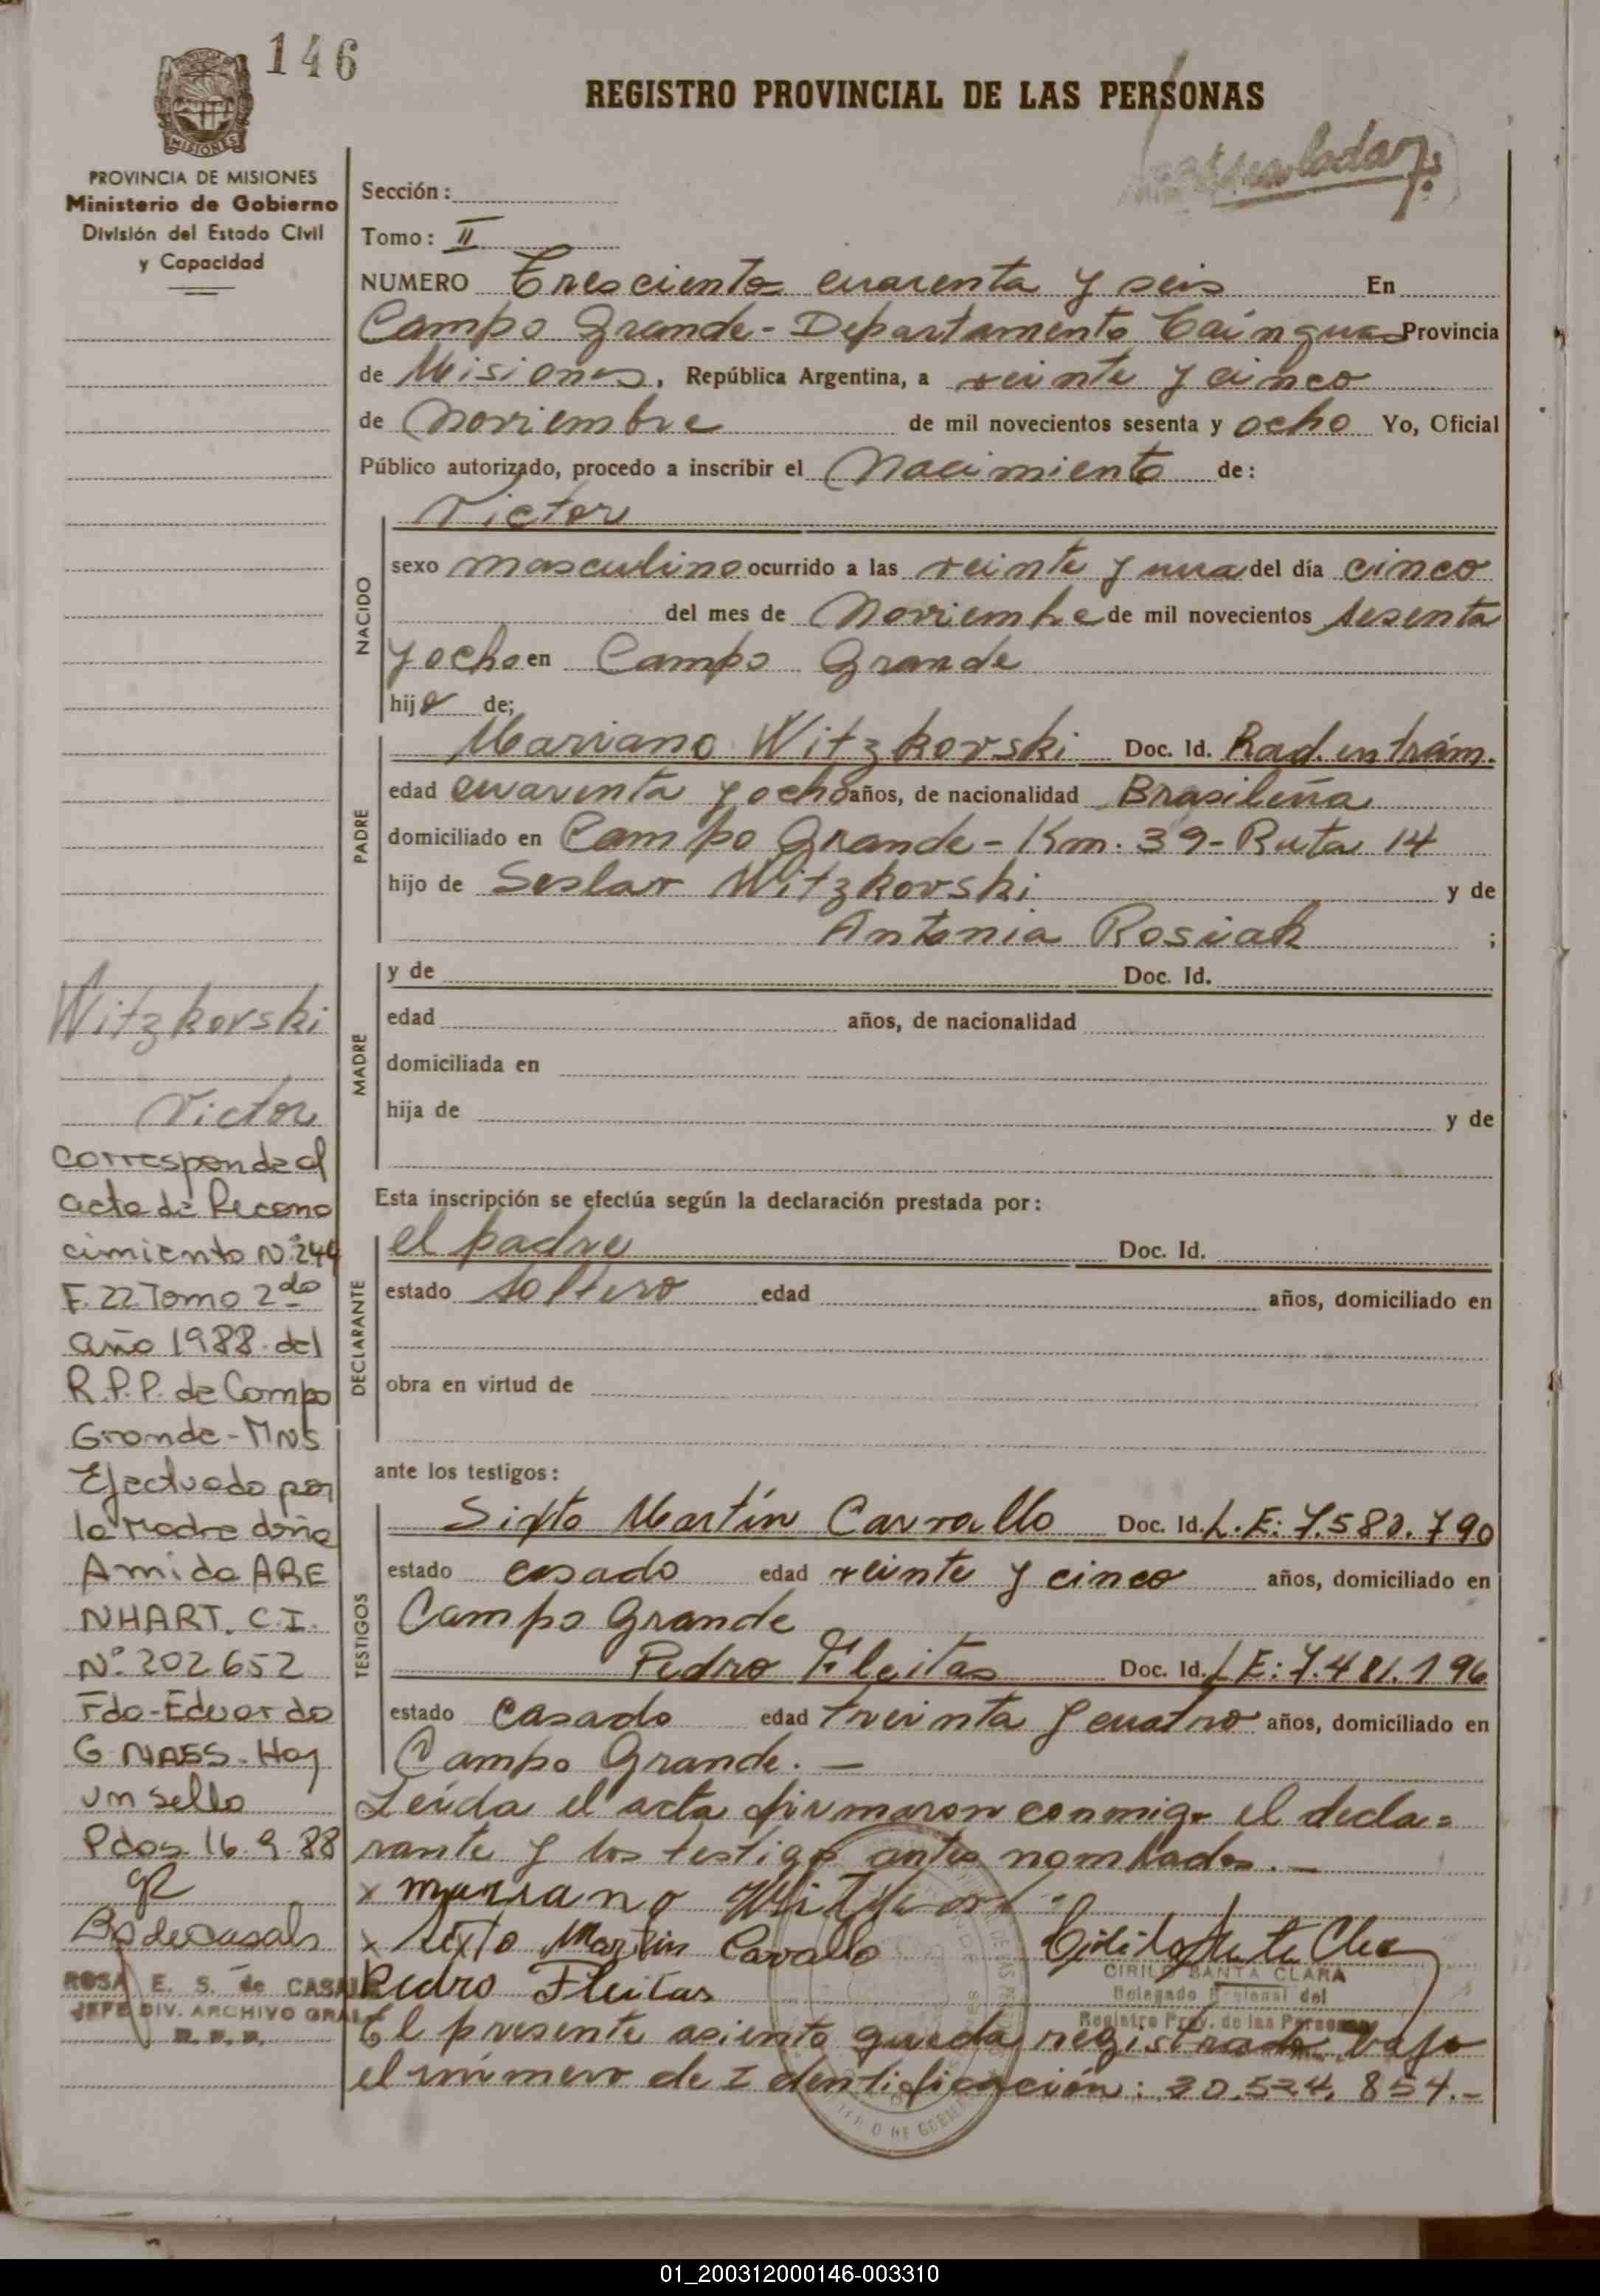 146
REGISTRO PROVINCIAL DE LAS PERSONAS
MISIONES
PROVINCIA DE MISIONES
Ministerio de Gobierno
División del Estado Civil
y Capacidad
Sección:
Tomo: II
NUMERO Trescientos cuarenta y seis En
Campo Grande - Departamento Cainguas Provincia
de Misiones, República Argentina, a veinte y cinco
de Noviembre de mil novecientos sesenta y ocho Yo, Oficial
Público autorizado, procedo a inscribir el Nacimiento de:
Victor
NACIDO
sexo masculino ocurrido a las veinte y una del día cinco
del mes de Noviembre de mil novecientos sesenta
y ocho en Campo Grande
hijo de;
PADRE
Mariano Witzkovski Doc. Id. Rad. en trám.
edad cuarenta y ocho años, de nacionalidad Brasileña
domiciliado en Campo Grande - Km. 39 - Ruta 14
hijo de Seslav Witzkovski y de
Antonia Rosiak ;
MADRE
y de Doc. Id.
edad años, de nacionalidad
domiciliada en
hija de y de
Esta inscripción se efectúa según la declaración prestada por:
DECLARANTE
el padre Doc. Id.
estado soltero edad años, domiciliado en
obra en virtud de
ante los testigos:
TESTIGOS
Sixto Martín Carvallo Doc. Id. L.E: 7.580.790
estado casado edad veinte y cinco años, domiciliado en
Campo Grande
Pedro Fleitas Doc. Id. L E: 7.481.196
estado casado edad treinta y cuatro años, domiciliado en
Campo Grande. —
Leída el acta firmaron conmigo el decla=
rante y los testigos antes nombrados. —
x mariano
x sixto Martin Cavallo
Pedro Fleitas
CIRILO SANTA CLARA
Delegado Regional del
Registro Prov. de las Personas
El presente asiento queda registrado bajo
el número de Identificación: 20.524.854.-
Witzkovski
Victor
Corresponde al
acta de Recono
cimiento Nº 244
F. 22 Tomo 2do
año 1988 del
R.P.P. de Campo
Grande - Mns
Efectuado por
la Madre doña
Amida ARE
NHART. C.I.
Nº 202652
Fdo - Eduardo
G. NASS - Hay
un sello
Pdas 16.9.88
ROSA E. S. de CASALS
JEFE DIV. ARCHIVO GRAL
R.P.P.
01_200312000146-003310